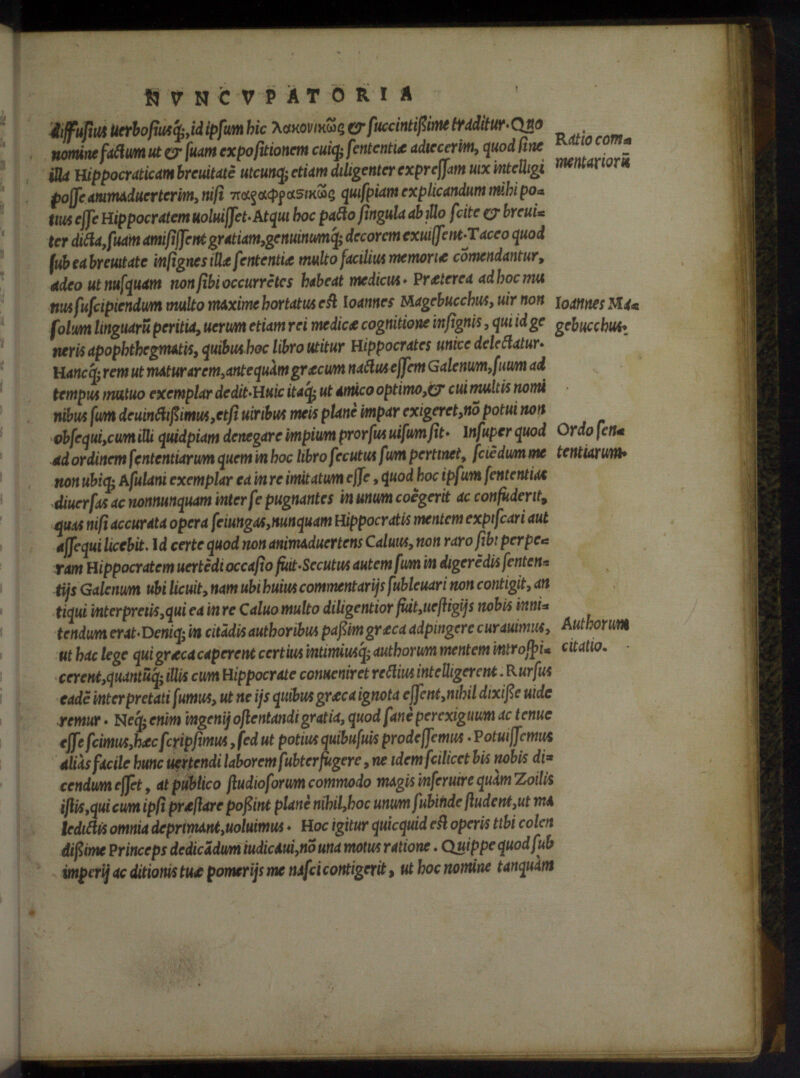 NVNCVPATORIA
diffusius uerbosiusq;, id ipsum hic λακονικῶς & succintißime traditur. Quo
nomine factum ut & suam expositionem cuiq; sententiæ adiecerim, quod sine
illa Hippocraticam breuitatē utcunq; etiam diligenter expressam uix intelligi
posse animaduerterim, nisi παραφραστικῶς quispiam explicandum mihi po=
tius esse Hippocratem uoluisset. Atqui hoc pacto singula ab illo scite & breui=
ter dicta, suam amisissent gratiam, genuinumq; decorem exuissent. Taceo quod
sub ea breuitate insignes illæ sententiæ multo facilius memoriæ cōmendantur,
adeo ut nusquam non sibi occurrētes habeat medicus. Præterea ad hoc mu
nus suscipiendum multo maxime hortatus est Ioannes Magebucchus, uir non
solum linguarū peritia, uerum etiam rei medicæ cognitione insignis, qui id ge
neris apophthegmatis, quibus hoc libro utitur Hippocrates unice delectatur.
Hancq; rem ut maturarem, antequàm græcum nactus essem Galenum, suum ad
tempus mutuo exemplar dedit. Huic itaq; ut amico optimo, & cui multis nomi
nibus sum deuinctißimus, etsi uiribus meis planè impar exigeret, nō potui non
obsequi, cum illi quidpiam denegare impium prorsus uisum sit. Insuper quod
ad ordinem sententiarum quem in hoc libro secutus sum pertinet, sciēdum me
non ubiq; Asulani exemplar ea in re imitatum esse, quod hoc ipsum sententias
diuersas ac nonnunquam inter se pugnantes in unum coëgerit ac confuderit,
quas nisi accurata opera seiungas, nunquam Hippocratis mentem expiscari aut
assequi licebit. Id certe quod non animaduertens Caluus, non raro sibi perpe=
ram Hippocratem uertēdi occasio fuit. Secutus autem sum in digerēdis senten=
tijs Galenum ubi licuit, nam ubi huius commentarijs subleuari non contigit, an
tiqui interpretis, qui ea in re Caluo multo diligentior fuit, uestigijs nobis inni=
tendum erat. Deniq; in citādis authoribus paßim græca adpingere curauimus,
ut hac lege qui græca caperent certius intimiusq; authorum mentem introspi=
cerent, quantūq; illis cum Hippocrate conueniret rectius intelligerent. Rursus
eadē interpretati sumus, ut ne ijs quibus græca ignota essent, nihil dixiße uide
remur. Neq; enim ingenij ostentandi gratia, quod sanè perexiguum ac tenue
esse scimus, hæc scripsimus, sed ut potius quibusuis prodessemus. Potuissemus
aliàs facile hunc uertendi laborem subterfugere, ne idem scilicet bis nobis di=
cendum esset, at publico studiosorum commodo magis inseruire quàm Zoilis
istis, qui cum ipsi præstare poßint planè nihil, hoc unum subinde student, ut ma
ledictis omnia deprimant, uoluimus. Hoc igitur quicquid est operis tibi colen
dißime Princeps dedicādum iudicaui, nō una motus ratione. Quippe quod sub
imperij ac ditionis tuæ pomerijs me nasci contigerit, ut hoc nomine tanquàm
Ratio com=
mentariorū
Ioannes Ma=
gebucchus.
Ordo sen=
tentiarum.
Authorum
citatio.